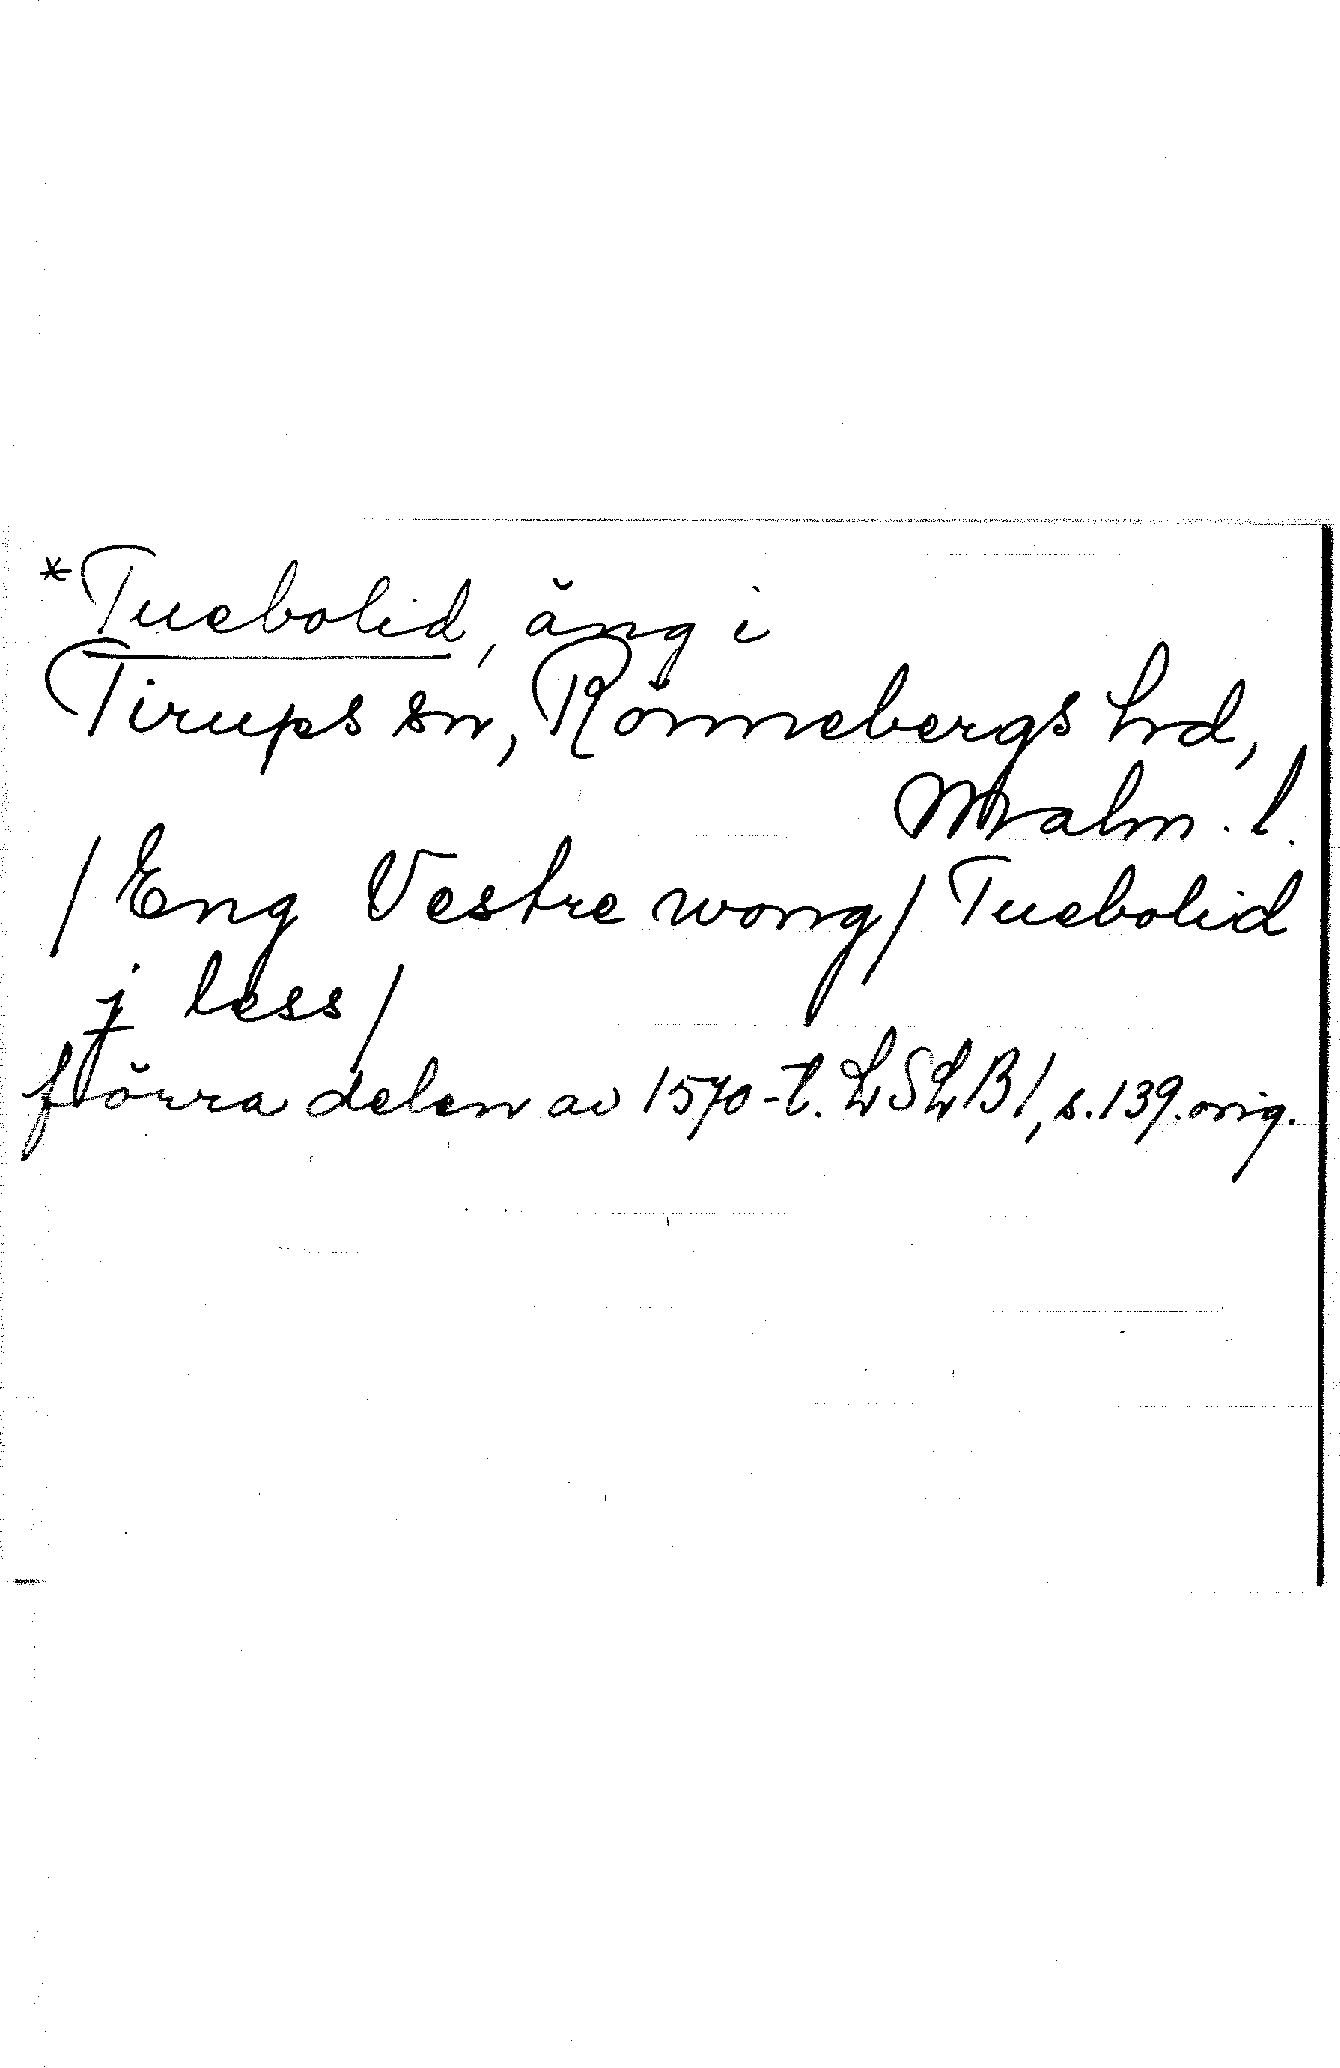 *Tuebolid, äng i
Tirups sn, Rönnebergs hd,
Malm. l.
/Eng Vestre wong/ Tuebolid
j less/
förra delen av 1570-t. LSLB1, s. 139. orig.